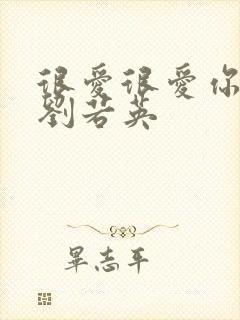 很爱很爱你
劉若英
畢志平